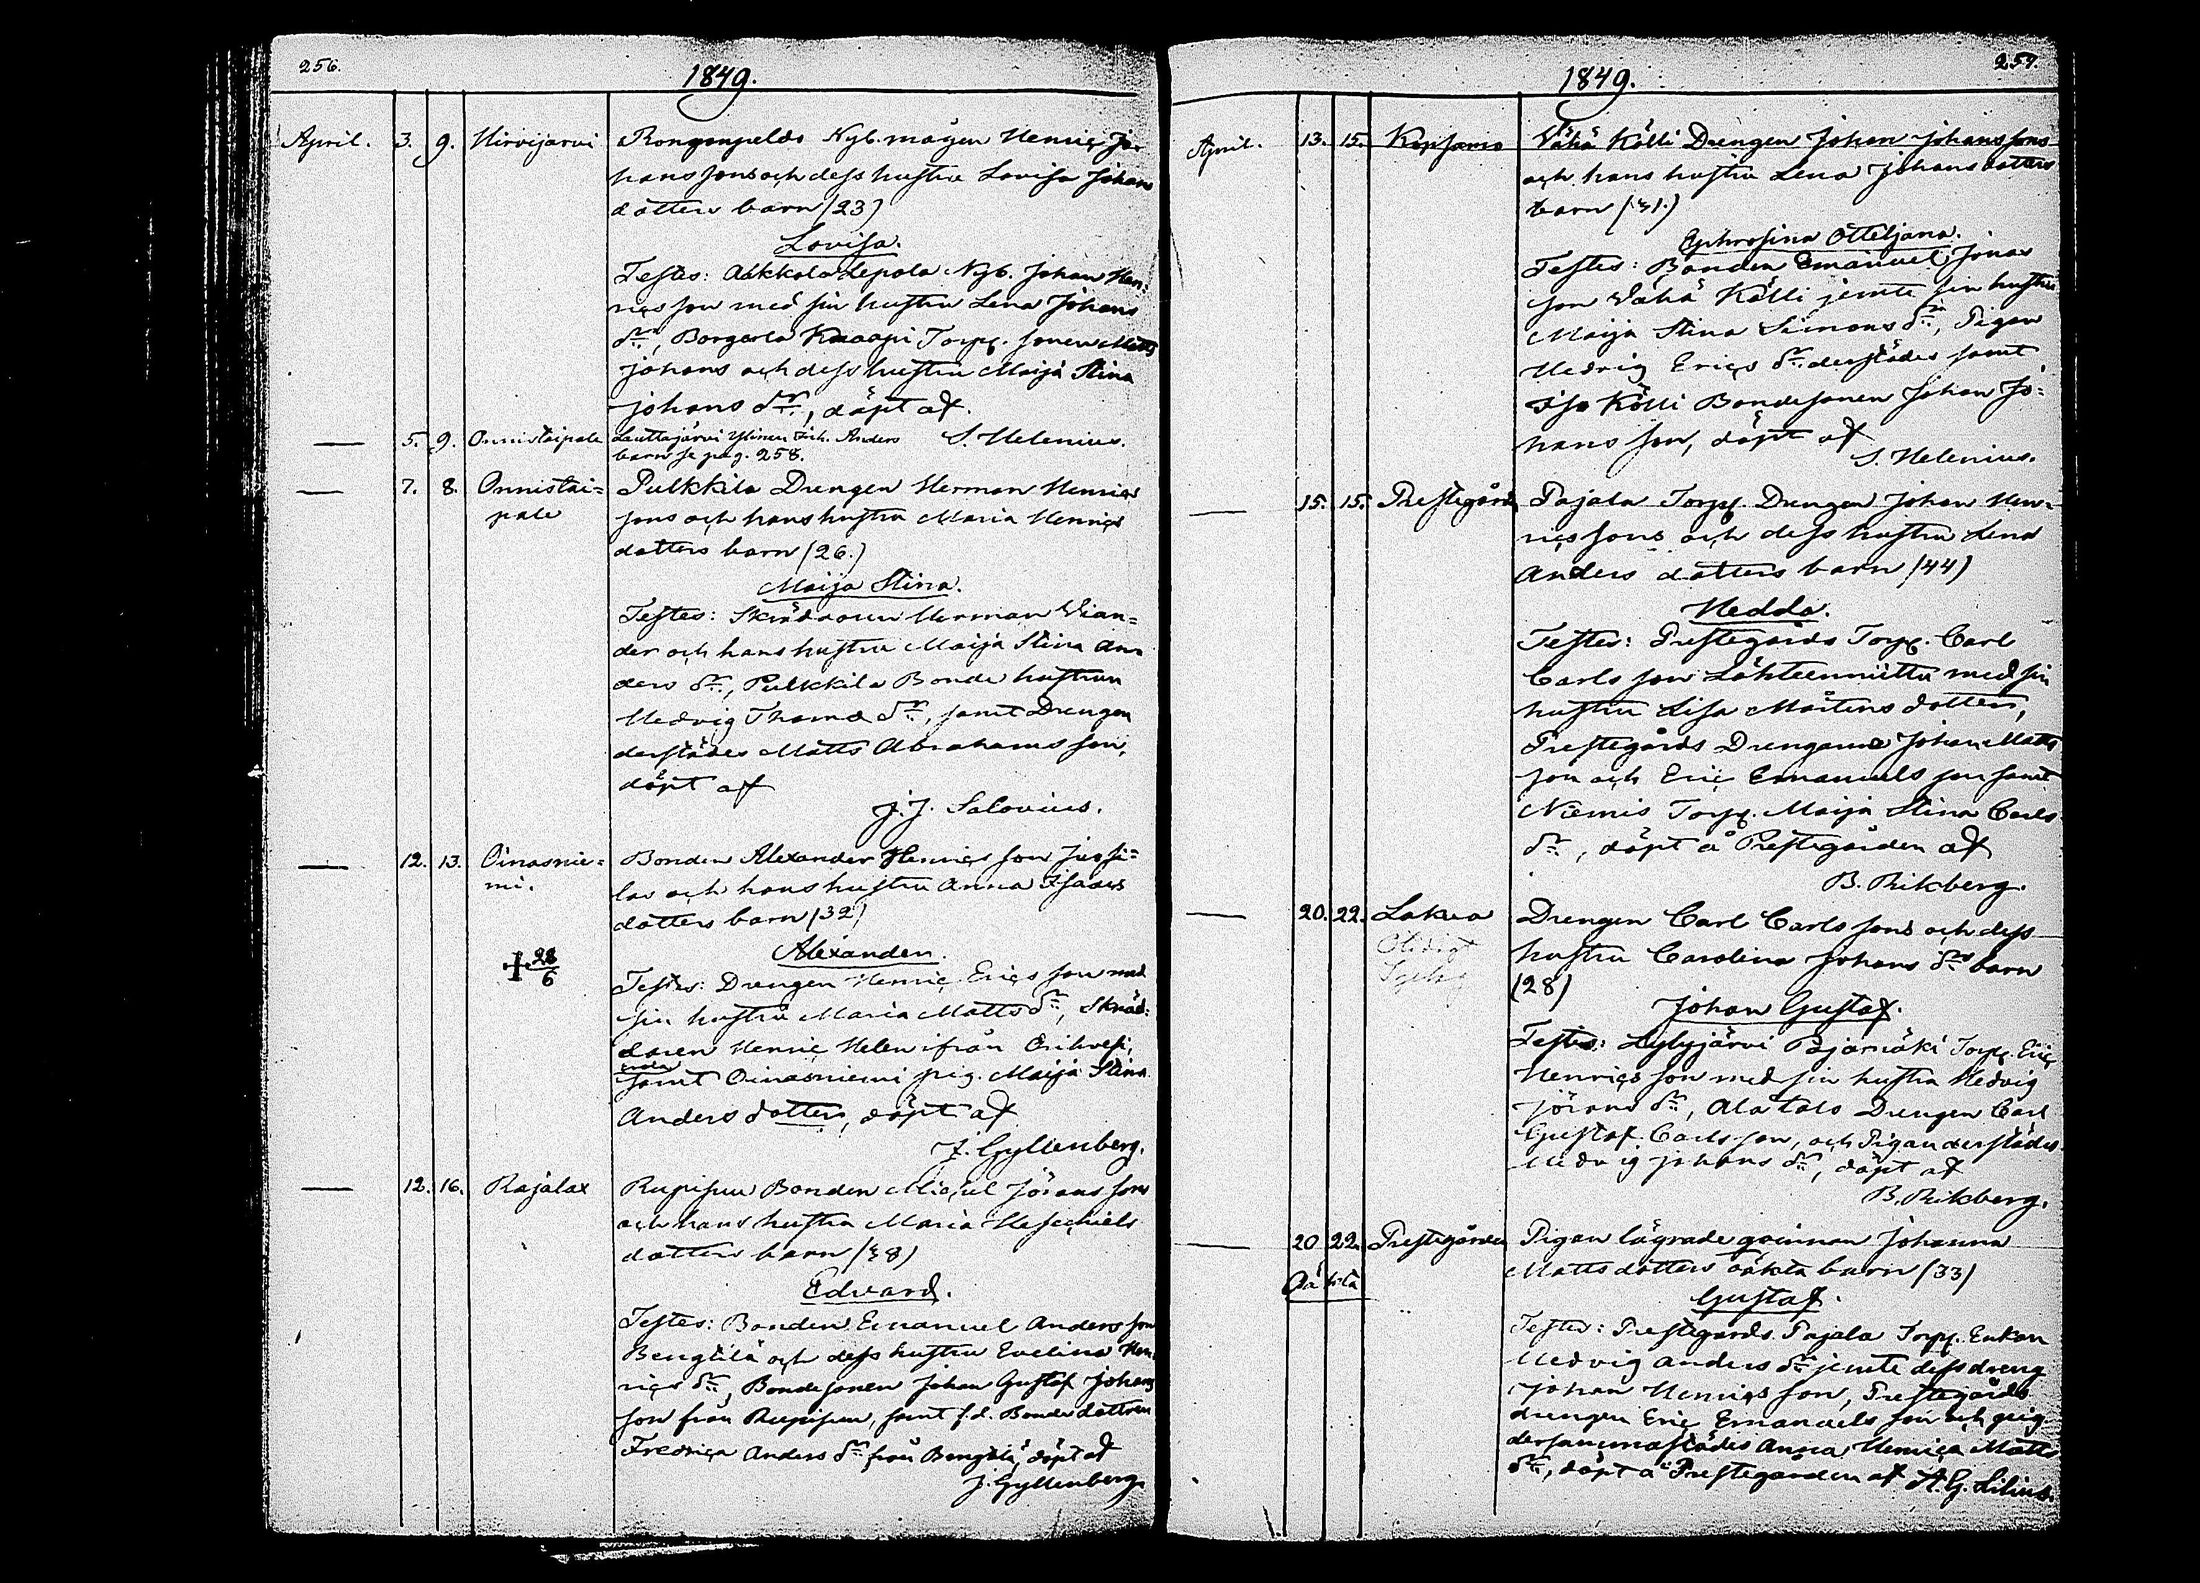 256.
1849.
April. 3. 9. Hirvijärvi Rongonpeldo Nyb. mågen Henriç Jo-
hans sons och dess hustru Lovisa Johans
dotters barn (23)
Lovisa.
Testes: Akkola Lepola Nyb. Johan Hen-
riçs son med sin hustru Lena Johans
dr, Borgerla Knaapi Torp. sonen Matts
Johans och dess hustru Maija Stina
Johans dr, döpt af
S. Helenius.
— 5. 9. Onnistaipale Lauttajärvi Ylinen Inh. Anders
barn se pag. 258.
— 7. 8. Onnistai= Pulkkila Drengen Herman Henriçs
pale sons och hans hustru Maria Henriçs
dotters barn (26.)
Maija Stina.
Testes: Skräddaren Herman Wian=
der och hans hustru Maija Stina An-
ders dr, Pulkkila Bonde hustrun
Hedvig Thomas dr, samt Drengen
derstädes Matts Abrahams son,
döpt af
J. J. Salovius.
— 12. 13. Oinasnie= Bonden Alexander Henriçs son Jussi=
mi. las och hans hustru Anna Isaacs
dotters barn (32)
Alexander.
+ 28/6
Testes: Drengen Henriç Eriçs son med
sin hustru Maria Matts dr, Skräd-
daren Henriç Helen ifrån Orihvesi,
samt Oinasniemi pig. Maija Stina
Anders dotter, döpt af
J. Gyllenberg.
— 12. 16. Rajalax Rupisuu Bonden Miçael Jörans sons
och hans hustru Maria Hesechiels
dotters barn (38)
Edvard.
Testes: Bonden Emanuel Anders son
Bengtilä och dess hustru Evelina Hen-
riçs dr, Bondesonen Johan Gustaf Johans
son från Rupisuu, samt f.d. Bonde dottren
Fredriça Anders dr från Bengtilä, döpt af
J. Gyllenberg
257.
1849.
April. 13. 15. Wähä Kölli Drengen Johan Johans sons
och hans hustru Lena Johans dotters
barn (31.)
Ephrosina Ottiljana.
Testes: Bonden Emanuel Jonas
son Wähä Kölli jemte sin hustru
Maija Stina Simons dr, Pigan
Hedvig Eriçs dr derstädes samt
Iso Kölli Bondesonen Johan Jo-
hans son, döpt af
S. Helenius.
— 15. 15. Prestegård Pajala Torp. Drengen Johan Hen=
riçs sons och dess hustru Lena
Anders dotters barn (44)
Hedda.
Testes: Prestegårds Torp. Carl
Carls son Lähteenmitta med sin
hustru Lisa Mårtens dotter,
Prestegårds Drengarne Johan Matts
son och Eriç Emanuels son samt
Niemis Torp. Maija Stina Carls
dr, döpt å Prestegården af
B. Rikberg.
— 20. 22. Lakia Drengen Carl Carls sons och dess
hustru Carolina Johans drs barn
(28)
Johan Gustaf.
Testes: Lylyjärvi Pajamäki Torp. Eriç
Henriçs son med sin hustru Hedvig
Jörans dr, Ala talo Drengen Carl
Gustaf Carls son, och Pigan derstädes
Hedvig Johans dr, döpt af
B. Rikberg.
— 20 22. Prestegården Pigan lägrade qvinnan Johanna
Matts dotters oäkta barn (33)
Oäkta
Gustaf.
Testes: Prestegårds Pajala Torp. Enkan
Hedvig Anders dr jemte dess dreng
Johan Henriçs son, Prestegårds
drengen Eriç Emanuels son och pig.
dersammastädes Anna Henriça Matts
dr, döpt å Prestegården af A. G. Lilius.